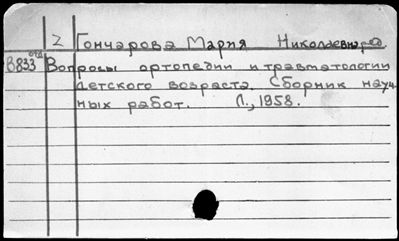 2 Гончарова Мария Николаевна
В833 Вопросы ортопедии и травматологии
детского возраста. Сборник науч
ных работ. Л., 1958.